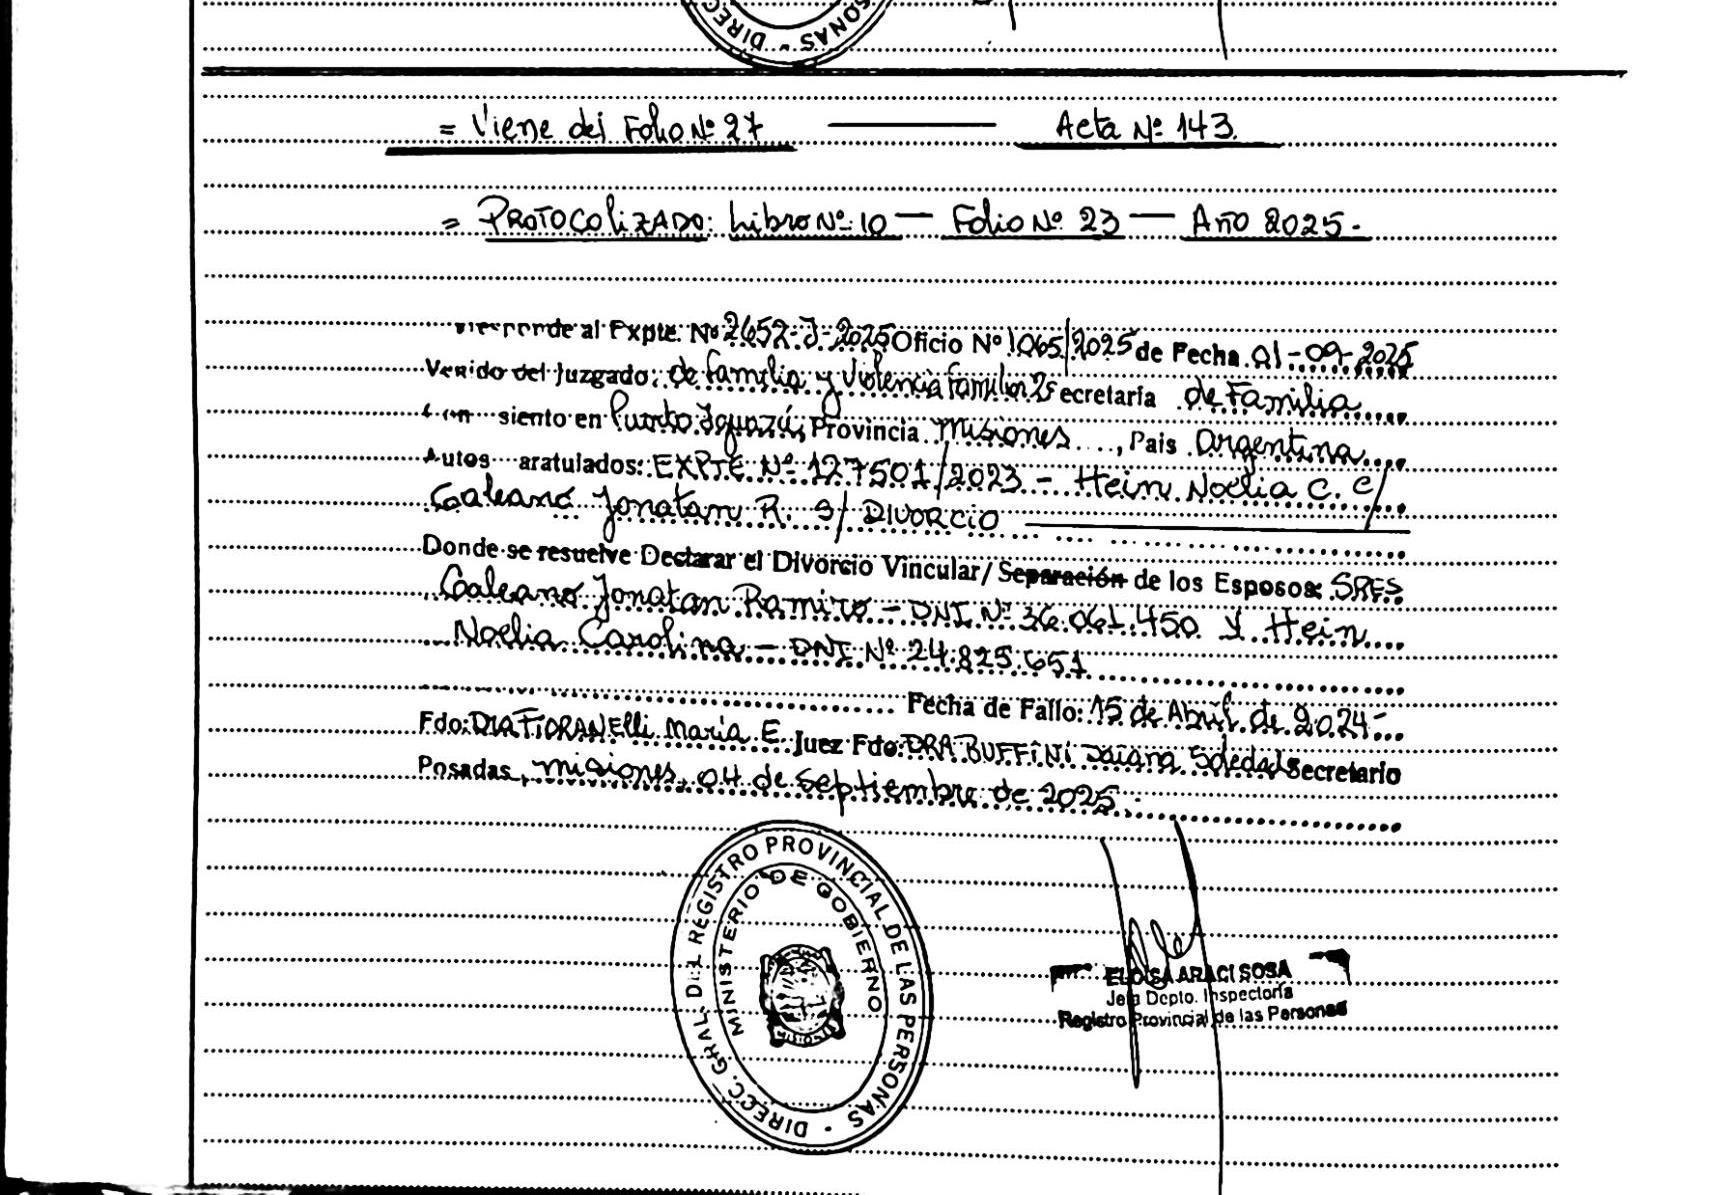 DIREC SONAS -
= Viene del Folio Nº 27 ——— Acta Nº 143.
= PROTOCOLIZADO: Libro Nº 10 — Folio Nº 23 — Año 2025.-
al Expte. Nº 2652-J-2025 Oficio Nº 1065/2025 de Fecha 01-09-2025
Venido del Juzgado: de familia y Violencia familiar Secretaría de Familia
siento en Puerto Iguazú, Provincia Misiones, Pais Argentina
Autos aratulados: EXPTE Nº 127501/2023 - Hein Noelia C. C/
Galeano Jonatan R. S/ DIVORCIO
Donde se resuelve Declarar el Divorcio Vincular/Separación de los Esposos: SRES
Galeano Jonatan Ramiro - DNI Nº 36.061.450 y Hein
Noelia Carolina - DNI Nº 24.825.651
Fecha de Fallo: 15 de Abril de 2024-
Fdo: DRA FIORANElli María E. Juez Fdo: DRA BUFFINI Daiana Soledad Secretario
Posadas, misiones, 04 de Septiembre de 2025.-
DIRECC. GRAL. DEL REGISTRO PROVINCIAL DE LAS PERSONAS -
MINISTERIO DE GOBIERNO
ELOISA ARACI SOSA
Jefa Dcpto. Inspectoría
Registro Provincial de las Personas